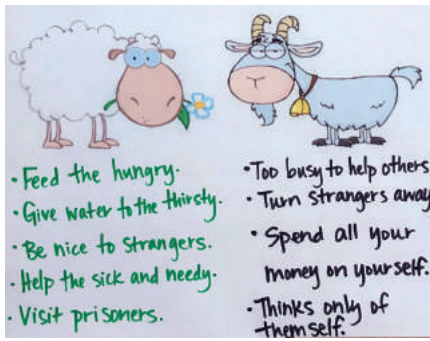 • Feed the hungry.
• Give water to the thirsty.
• Be nice to strangers.
• Help the sick and needy.
• Visit prisoners.
• Too busy to help others
• Turn strangers away
• Spend all your
money on yourself.
• Thinks only of
themself.